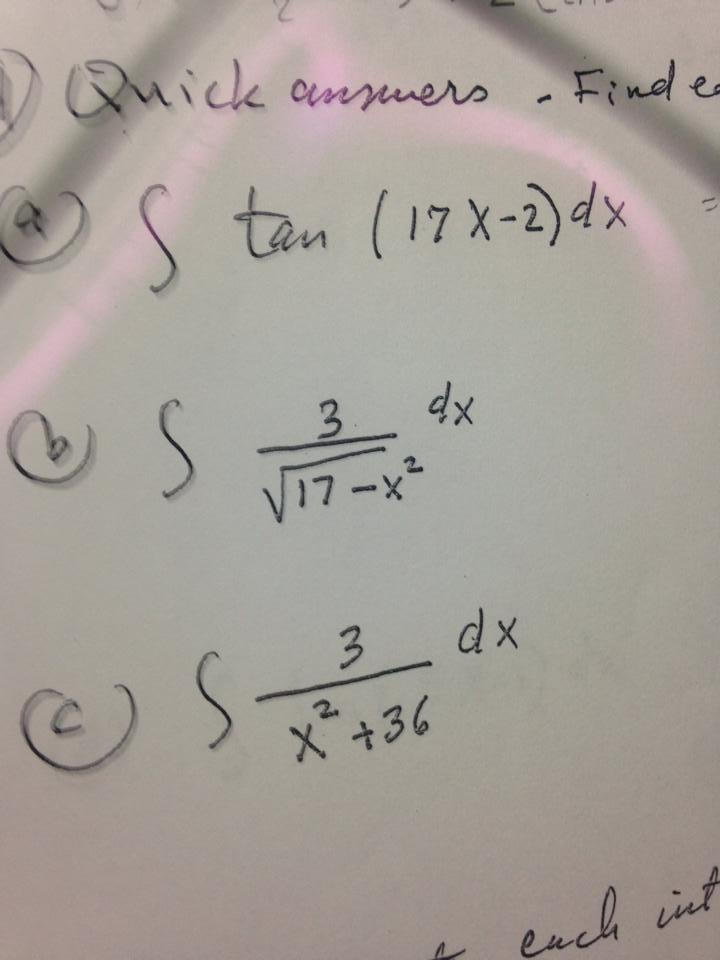 Quick answers - Find
a) ∫ tan (17x-2) dx =
b) ∫ 3/√(17-x²) dx
c) ∫ 3/(x²+36) dx
each